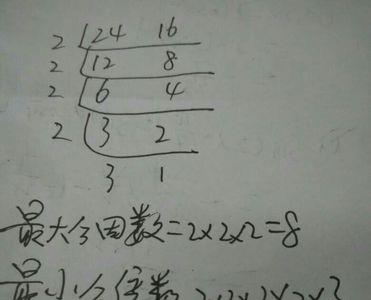 2 24 16
2 12 8
2 6 4
2 3 2
3 1
最大公因数=2×2×2=8
最小公倍数